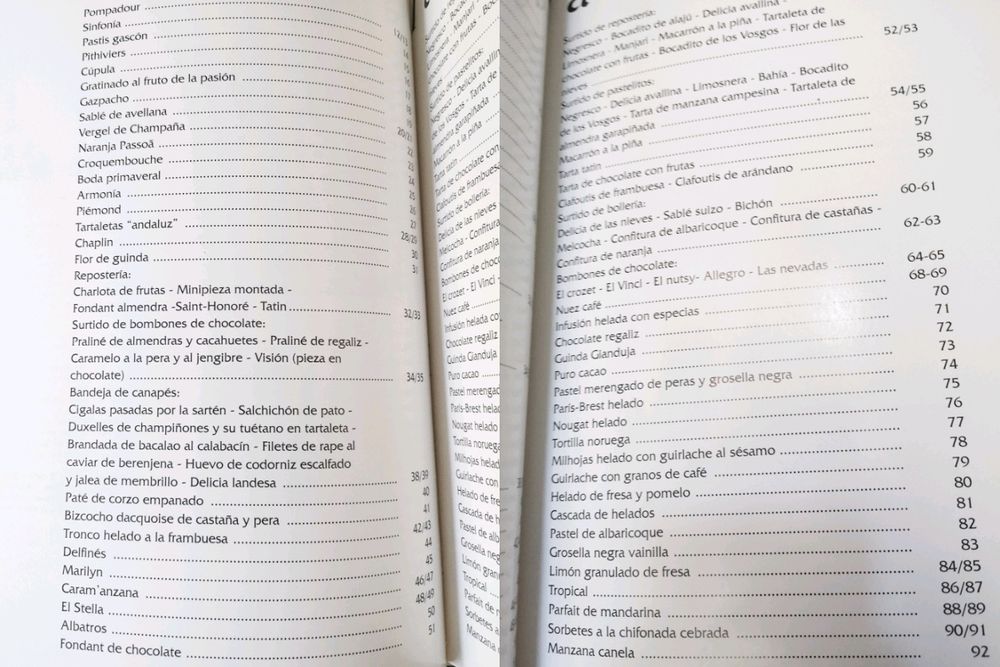 Pompadour 12/13
Sinfonía 14
Pastis gascón 15
Pithiviers 16
Cúpula 17
Gratinado al fruto de la pasión 18
Gazpacho 19
Sablé de avellana 20/21
Vergel de Champaña 22
Naranja Passoã 23
Croquembouche 24
Boda primaveral 25
Armonía 26
Piémond 27
Tartaletas "andaluz" 28/29
Chaplin 30
Flor de guinda 31
Repostería:
Charlota de frutas - Minipieza montada -
Fondant almendra -Saint-Honoré - Tatin 32/33
Surtido de bombones de chocolate:
Praliné de almendras y cacahuetes - Praliné de regaliz -
Caramelo a la pera y al jengibre - Visión (pieza en
chocolate) 34/35
Bandeja de canapés:
Cigalas pasadas por la sartén - Salchichón de pato -
Duxelles de champiñones y su tuétano en tartaleta -
Brandada de bacalao al calabacín - Filetes de rape al
caviar de berenjena - Huevo de codorniz escalfado
y jalea de membrillo - Delicia landesa 38/39
Paté de corzo empanado 40
Bizcocho dacquoise de castaña y pera 41
Tronco helado a la frambuesa 42/43
Delfinés 44
Marilyn 45
Caram'anzana 46/47
El Stella 48/49
Albatros 50
Fondant de chocolate 51
Surtido de repostería:
Negresco - Bocadito de alajú - Delicia avallina -
Limosnera - Manjarí - Macarrón a la piña - Tartaleta de
chocolate con frutas - Bocadito de los Vosgos - Flor de las
nieves 52/53
Surtido de pastelitos:
Negresco - Delicia avallina - Limosnera - Bahía - Bocadito
de los Vosgos - Tarta de manzana campesina - Tartaleta de
almendra garapiñada 54/55
Macarrón a la piña 56
Tarta tatin 57
Tarta de chocolate con frutas 58
Clafoutis de frambuesa - Clafoutis de arándano 59
Surtido de bollería:
Delicia de las nieves - Sablé suizo - Bichón 60-61
Melcocha - Confitura de albaricoque - Confitura de castañas -
Confitura de naranja 62-63
Bombones de chocolate:
El crozet - El Vinci - El nutsy- Allegro - Las nevadas 64-65
Nuez café 68-69
Infusión helada con especias 70
Chocolate regaliz 71
Guinda Gianduja 72
Puro cacao 73
Pastel merengado de peras y grosella negra 74
Paris-Brest helado 75
Nougat helado 76
Tortilla noruega 77
Milhojas helado con guirlache al sésamo 78
Guirlache con granos de café 79
Helado de fresa y pomelo 80
Cascada de helados 81
Pastel de albaricoque 82
Grosella negra vainilla 83
Limón granulado de fresa 84/85
Tropical 86/87
Parfait de mandarina 88/89
Sorbetes a la chifonada cebrada 90/91
Manzana canela 92